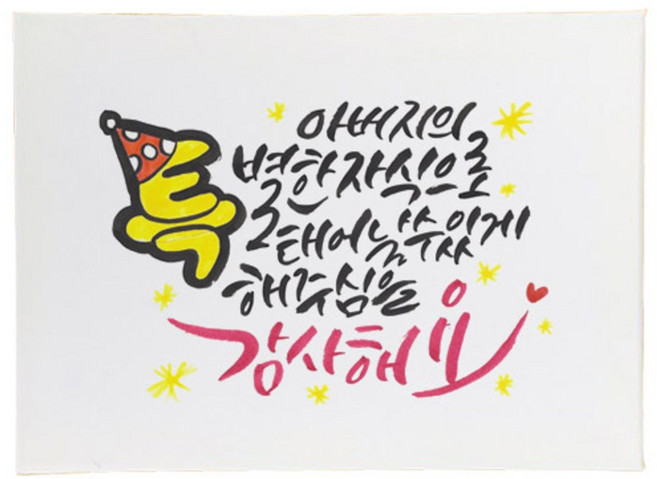 아버지의
특별한 자식으로
태어날 수 있게
해주심을
감사해요